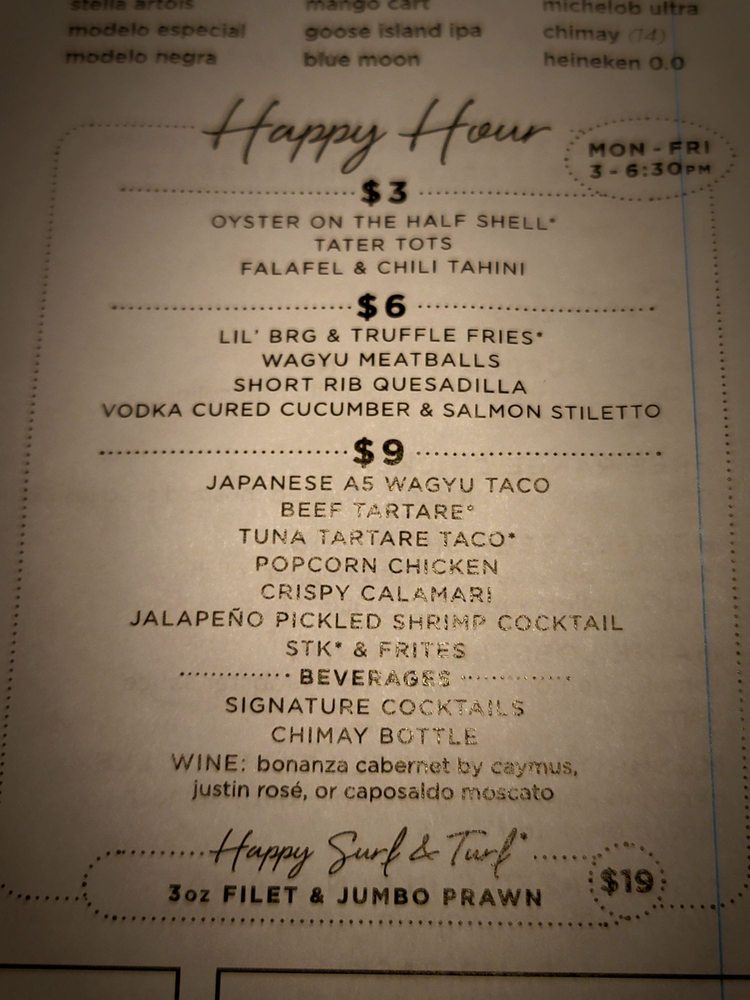 stella artois mango cart michelob ultra
modelo especial goose island ipa chimay (14)
modelo negra blue moon heineken 0.0
Happy Hour
MON - FRI
3 - 6:30PM
$3
OYSTER ON THE HALF SHELL*
TATER TOTS
FALAFEL & CHILI TAHINI
$6
LIL' BRG & TRUFFLE FRIES*
WAGYU MEATBALLS
SHORT RIB QUESADILLA
VODKA CURED CUCUMBER & SALMON STILETTO
$9
JAPANESE A5 WAGYU TACO
BEEF TARTARE*
TUNA TARTARE TACO*
POPCORN CHICKEN
CRISPY CALAMARI
JALAPEÑO PICKLED SHRIMP COCKTAIL
STK* & FRITES
BEVERAGES
SIGNATURE COCKTAILS
CHIMAY BOTTLE
WINE: bonanza cabernet by caymus,
justin rosé, or caposaldo moscato
Happy Surf & Turf*
3oz FILET & JUMBO PRAWN
$19